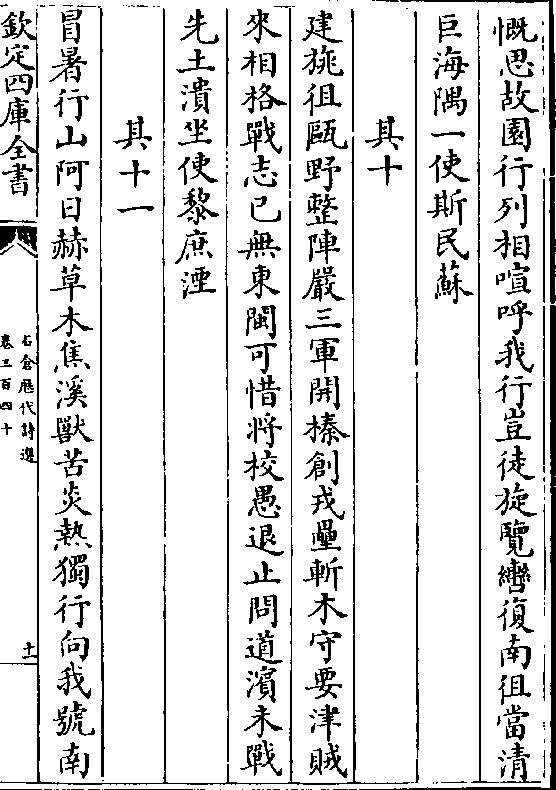 慨思故園行列相喧呼我行豈徒旋覽轡復南徂當清
巨海隅一使斯民蘇
其十
建旐徂甌野整陣嚴三軍開榛創戎壘斬木守要津賊
來相格戰志已無東閩可惜將校愚退止問道濱未戰
先土潰坐使黎庶湮
其十一
冒暑行山阿日赫草木焦溪獸苦炎熱獨行向我號南
欽定四庫全書
石倉歷代詩選
卷三百四十
十一